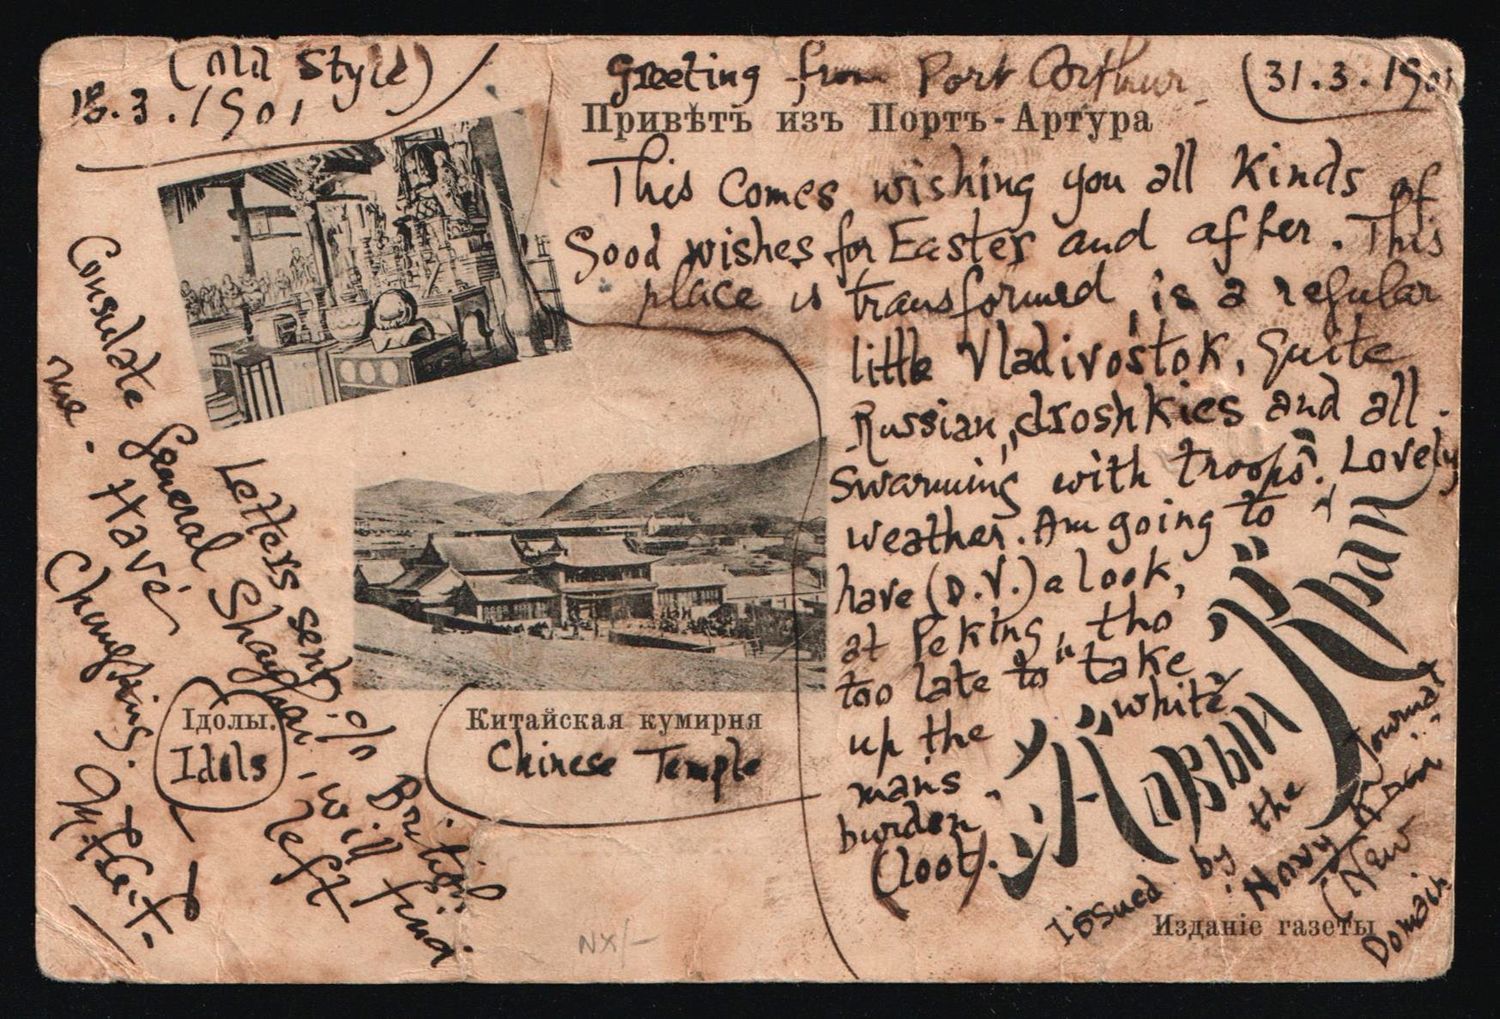 (Old Style)
18.3.1901
Greeting from Port Arthur.
(31.3.1901
Привѣтъ изъ Портъ-Артура
This comes wishing you all kinds of
Good wishes for Easter and after. This
place is transformed, is a regular
little Vladivostok, quite
Russian, droshkies and all.
"Swarming with troops". Lovely
weather. Am going to
have (D.V.) a look,
at Peking, tho
too late to "take
up the white
mans
burden"
(loot).
Letters sent c/o British
Consulate General Shanghai - will find
me. Have left
Chungking.
Iдолы.
Idols
Китайская кумирня
Chinese Temple
Новый Край
Issued by the Journal
Novy Krai
(New
Domain
Изданіе газеты
NX/-